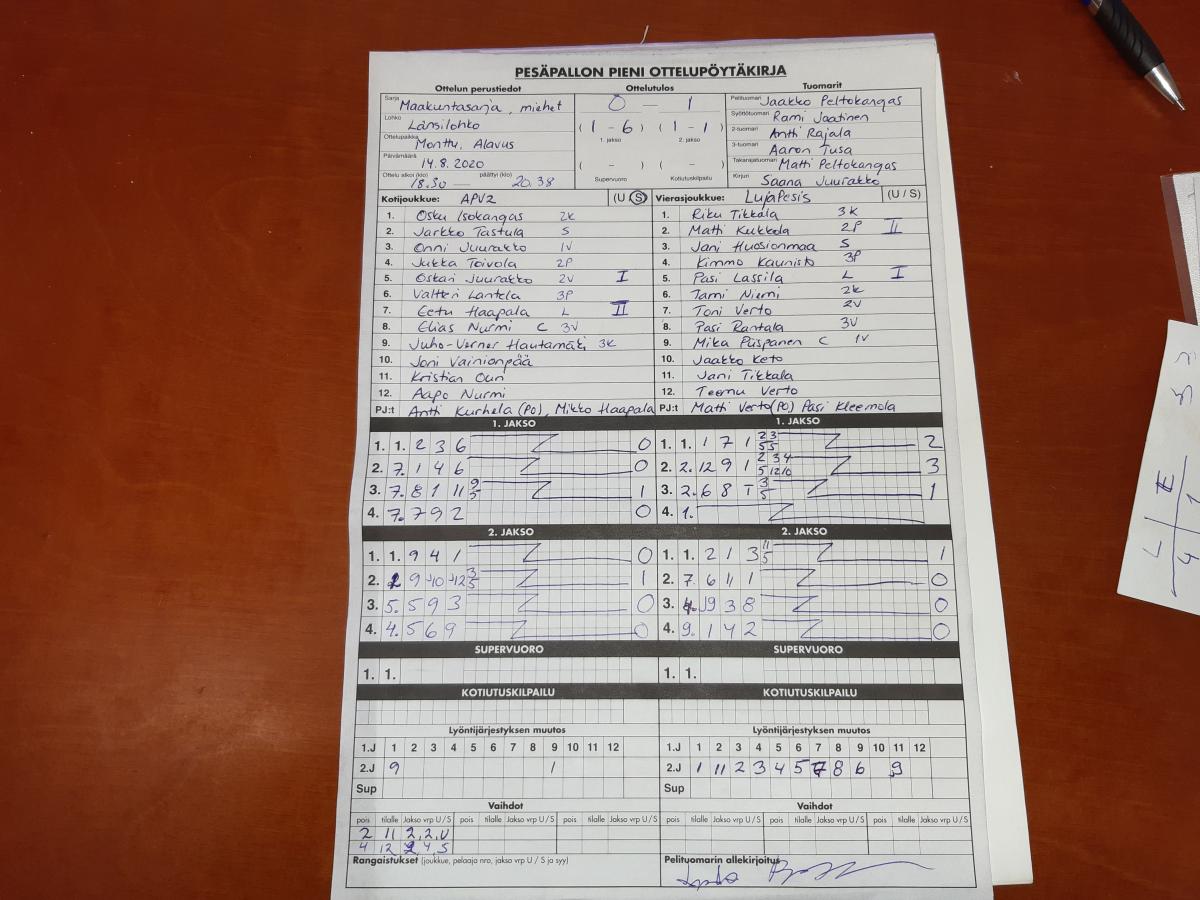 PESÄPALLON PIENI OTTELUPÖYTÄKIRJA
Ottelun perustiedot Ottelutulos Tuomarit
Sarja Maakuntasarja, miehet 0 — 1 Pelituomari Jaakko Peltokangas
Lohko Länsilohko (1 - 6) (1 - 1) Syöttötuomari Rami Jaatinen
Ottelupaikka Monttu, Alavus 1. jakso 2. jakso 2-tuomari Antti Rajala
Päivämäärä 14.8.2020 ( - ) ( - ) 3-tuomari Aaron Tusa
Takarajatuomari Matti Peltokangas
Ottelu alkoi (klo) 18.30 — päättyi (klo) 20.38 Supervuoro Kotiutuskilpailu Kirjuri Saana Juurakko
Kotijoukkue: APV2 (U / S) Vierasjoukkue: LujaPesis (U / S)
1. Osku Isokangas 2K 1. Riku Tikkala 3K
2. Jarkko Tastula S 2. Matti Kukkola 2P II
3. Onni Juurakko 1V 3. Jani Huosionmaa S
4. Jukka Toivola 2P 4. Kimmo Kaunisto 3P
5. Oskari Juurakko 2V I 5. Pasi Lassila L I
6. Valtteri Lantela 3P 6. Tami Niemi 2K
7. Eetu Haapala L II 7. Toni Verto 2V
8. Elias Nurmi C 3V 8. Pasi Rantala 3V
9. Juho-Verner Hautamäki 3K 9. Mika Piispanen C 1V
10. Joni Vainionpää 10. Jaakko Keto
11. Kristian Ouri 11. Jani Tikkala
12. Aapo Nurmi 12. Teemu Verto
PJ:t Antti Kurhela (PO), Mikko Haapala PJ:t Matti Verto (PO) Pasi Kleemola
1. JAKSO 1. JAKSO
1. 1. 2 3 6 0 1. 1. 1 7 1 2 3 5 5 2
2. 7. 1 4 6 0 2. 2. 12 9 1 2 3 4 5 12 10 3
3. 7. 8 1 11 9 5 1 3. 2. 6 8 T 3 5 1
4. 7. 7 9 2 0 4. 1.
2. JAKSO 2. JAKSO
1. 1. 9 4 1 0 1. 1. 2 1 3 11 5 1
2. 9 10 12 3 5 1 2. 7. 6 11 1 0
3. 5. 5 9 3 0 3. 4. 9 3 8 0
4. 4. 5 6 9 0 4. 9. 1 4 2 0
SUPERVUORO SUPERVUORO
1. 1. 1. 1.
KOTIUTUSKILPAILU KOTIUTUSKILPAILU
Lyöntijärjestyksen muutos Lyöntijärjestyksen muutos
1.J 1 2 3 4 5 6 7 8 9 10 11 12 1.J 1 2 3 4 5 6 7 8 9 10 11 12
2.J 9 1 2.J 1 11 2 3 4 5 7 8 6 9
Sup Sup
Vaihdot Vaihdot
pois tilalle Jakso vrp U / S pois tilalle Jakso vrp U / S pois tilalle Jakso vrp U / S pois tilalle Jakso vrp U / S pois tilalle Jakso vrp U / S pois tilalle Jakso vrp U / S
2 11 2, 2, U
4 12 2, 4, S
Rangaistukset (joukkue, pelaaja nro, jakso vrp U / S ja syy) Pelituomarin allekirjoitus